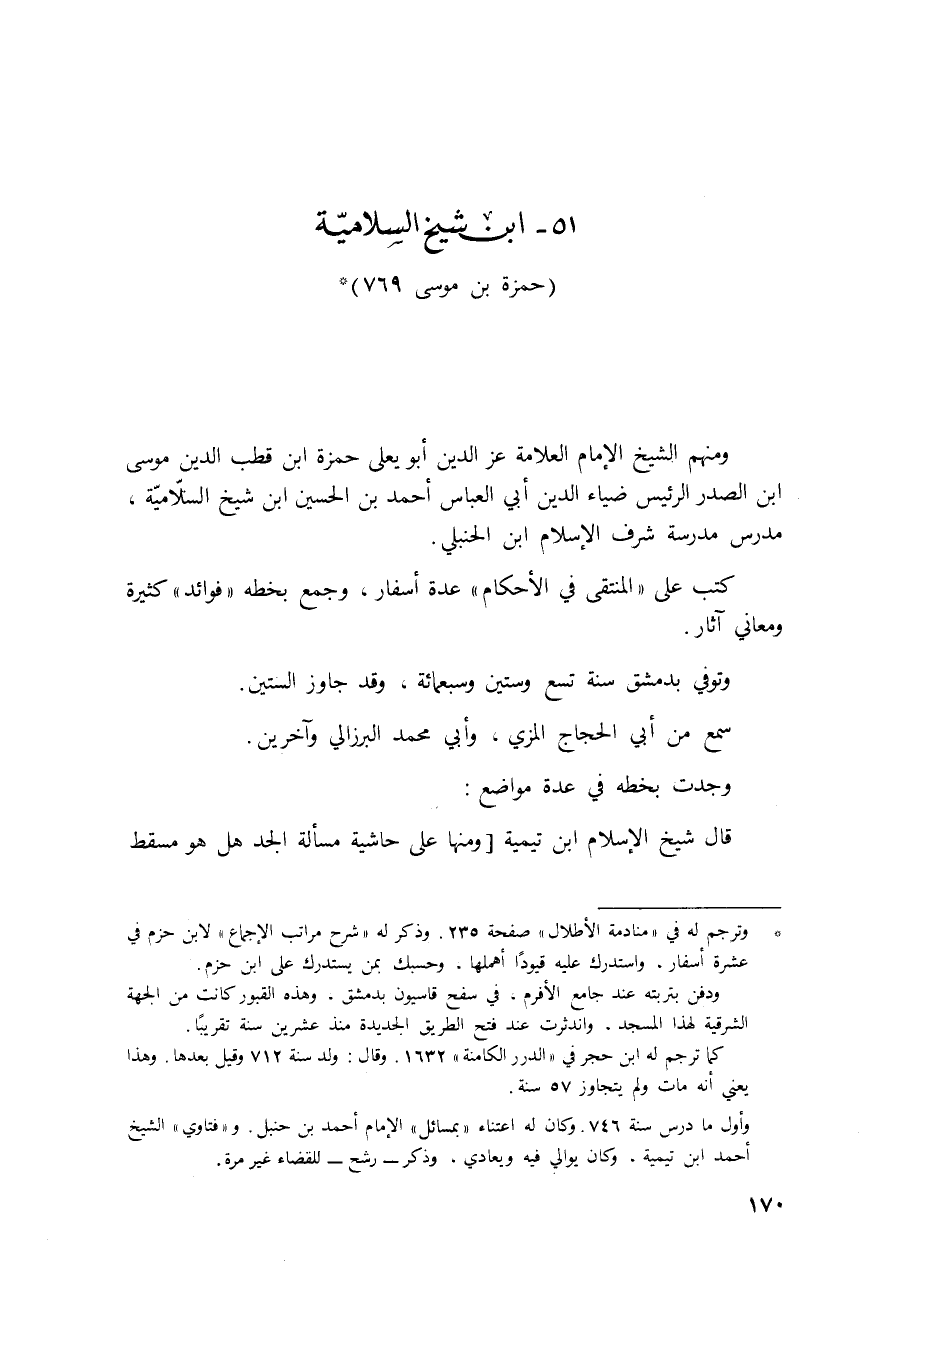 ٥١ - ابن شيخ السلاميّة
(حمزة بن موسى ٧٦٩)*
ومنهم الشيخ الإمام العلامة عز الدين أبو يعلى حمزة ابن قطب الدين موسى
ابن الصدر الرئيس ضياء الدين أبي العباس أحمد بن الحسين ابن شيخ السلّاميّة ،
مدرس مدرسة شرف الإسلام ابن الحنبلي .
كتب على «المنتقى في الأحكام» عدة أسفار ، وجمع بخطه «فوائد» كثيرة
ومعاني آثار .
وتوفي بدمشق سنة تسع وستين وسبعمائة ، وقد جاوز الستين .
سمع من أبي الحجاج المزي ، وأبي محمد البرزالي وآخرين .
وجدت بخطه في عدة مواضع :
قال شيخ الإسلام ابن تيمية [ومنها على حاشية مسألة الجد هل هو مسقط
* وترجم له في «منادمة الأطلال» صفحة ٢٣٥ . وذكر له «شرح مراتب الإجماع» لابن حزم في
عشرة أسفار . واستدرك عليه قيودًا أهملها . وحسبك بمن يستدرك على ابن حزم .
ودفن بتربته عند جامع الأفرم ، في سفح قاسيون بدمشق . وهذه القبور كانت من الجهة
الشرقية لهذا المسجد . واندثرت عند فتح الطريق الجديدة منذ عشرين سنة تقريبًا .
كما ترجم له ابن حجر في «الدرر الكامنة» ١٦٣٢ . وقال : ولد سنة ٧١٢ وقيل بعدها . وهذا
يعني أنه مات ولم يتجاوز ٥٧ سنة .
وأول ما درس سنة ٧٤٦ . وكان له اعتناء «بمسائل» الإمام أحمد بن حنبل . و«فتاوي» الشيخ
أحمد ابن تيمية . وكان يوالي فيه ويعادي . وذكر ـ رشح ـ للقضاء غير مرة .
١٧٠